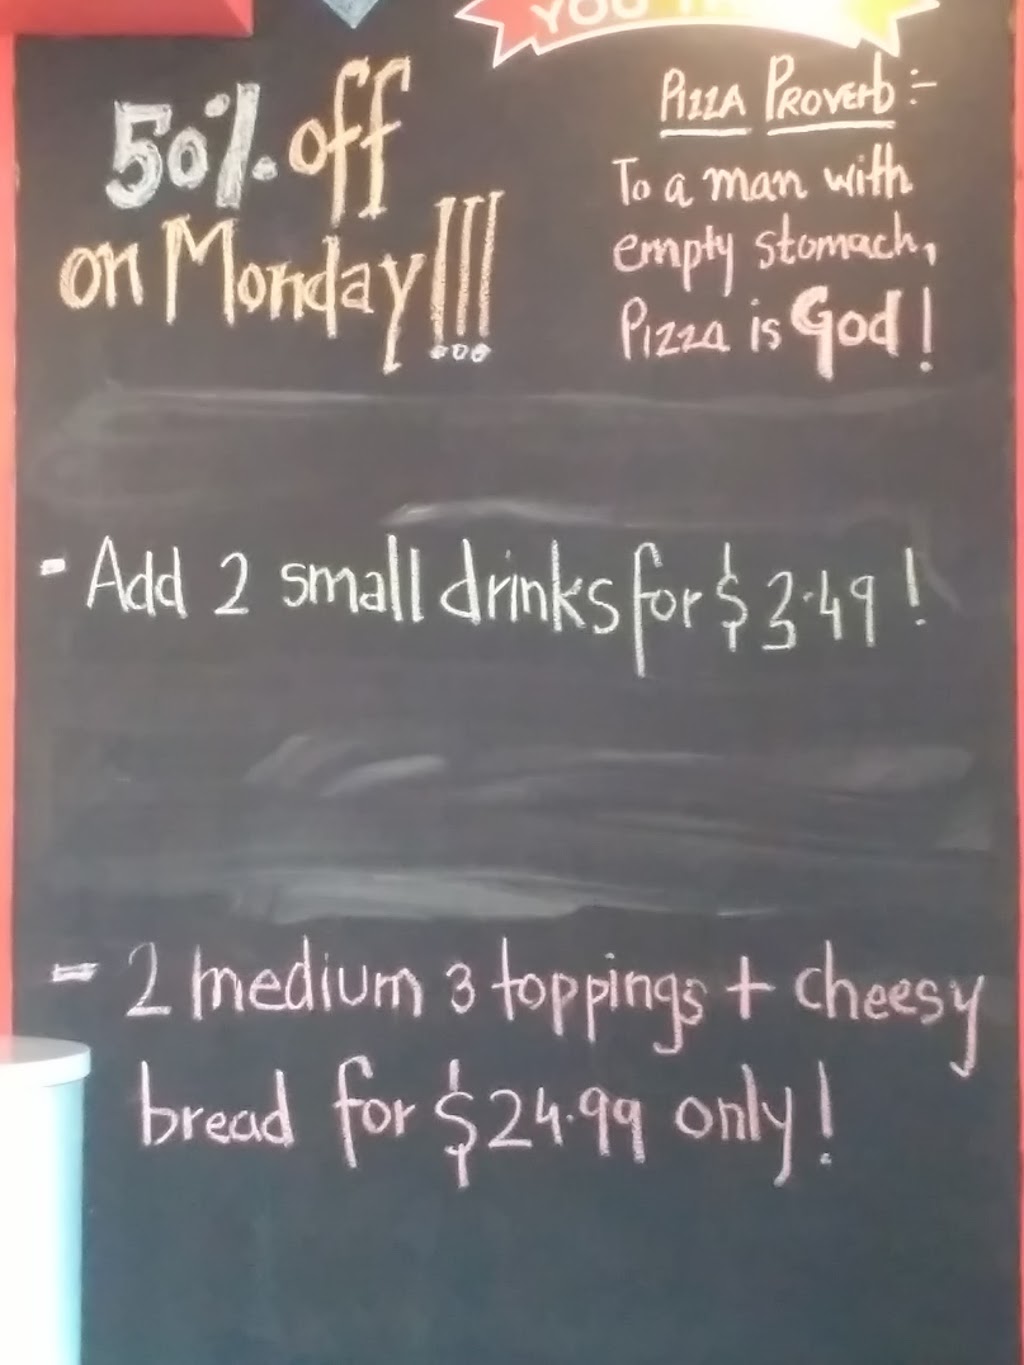 YOU
50% off
on Monday!!!
Pizza Proverb :-
To a man with
empty stomach,
Pizza is God!
- Add 2 small drinks for $3.49!
- 2 medium 3 toppings + cheesy
bread for $24.99 only!